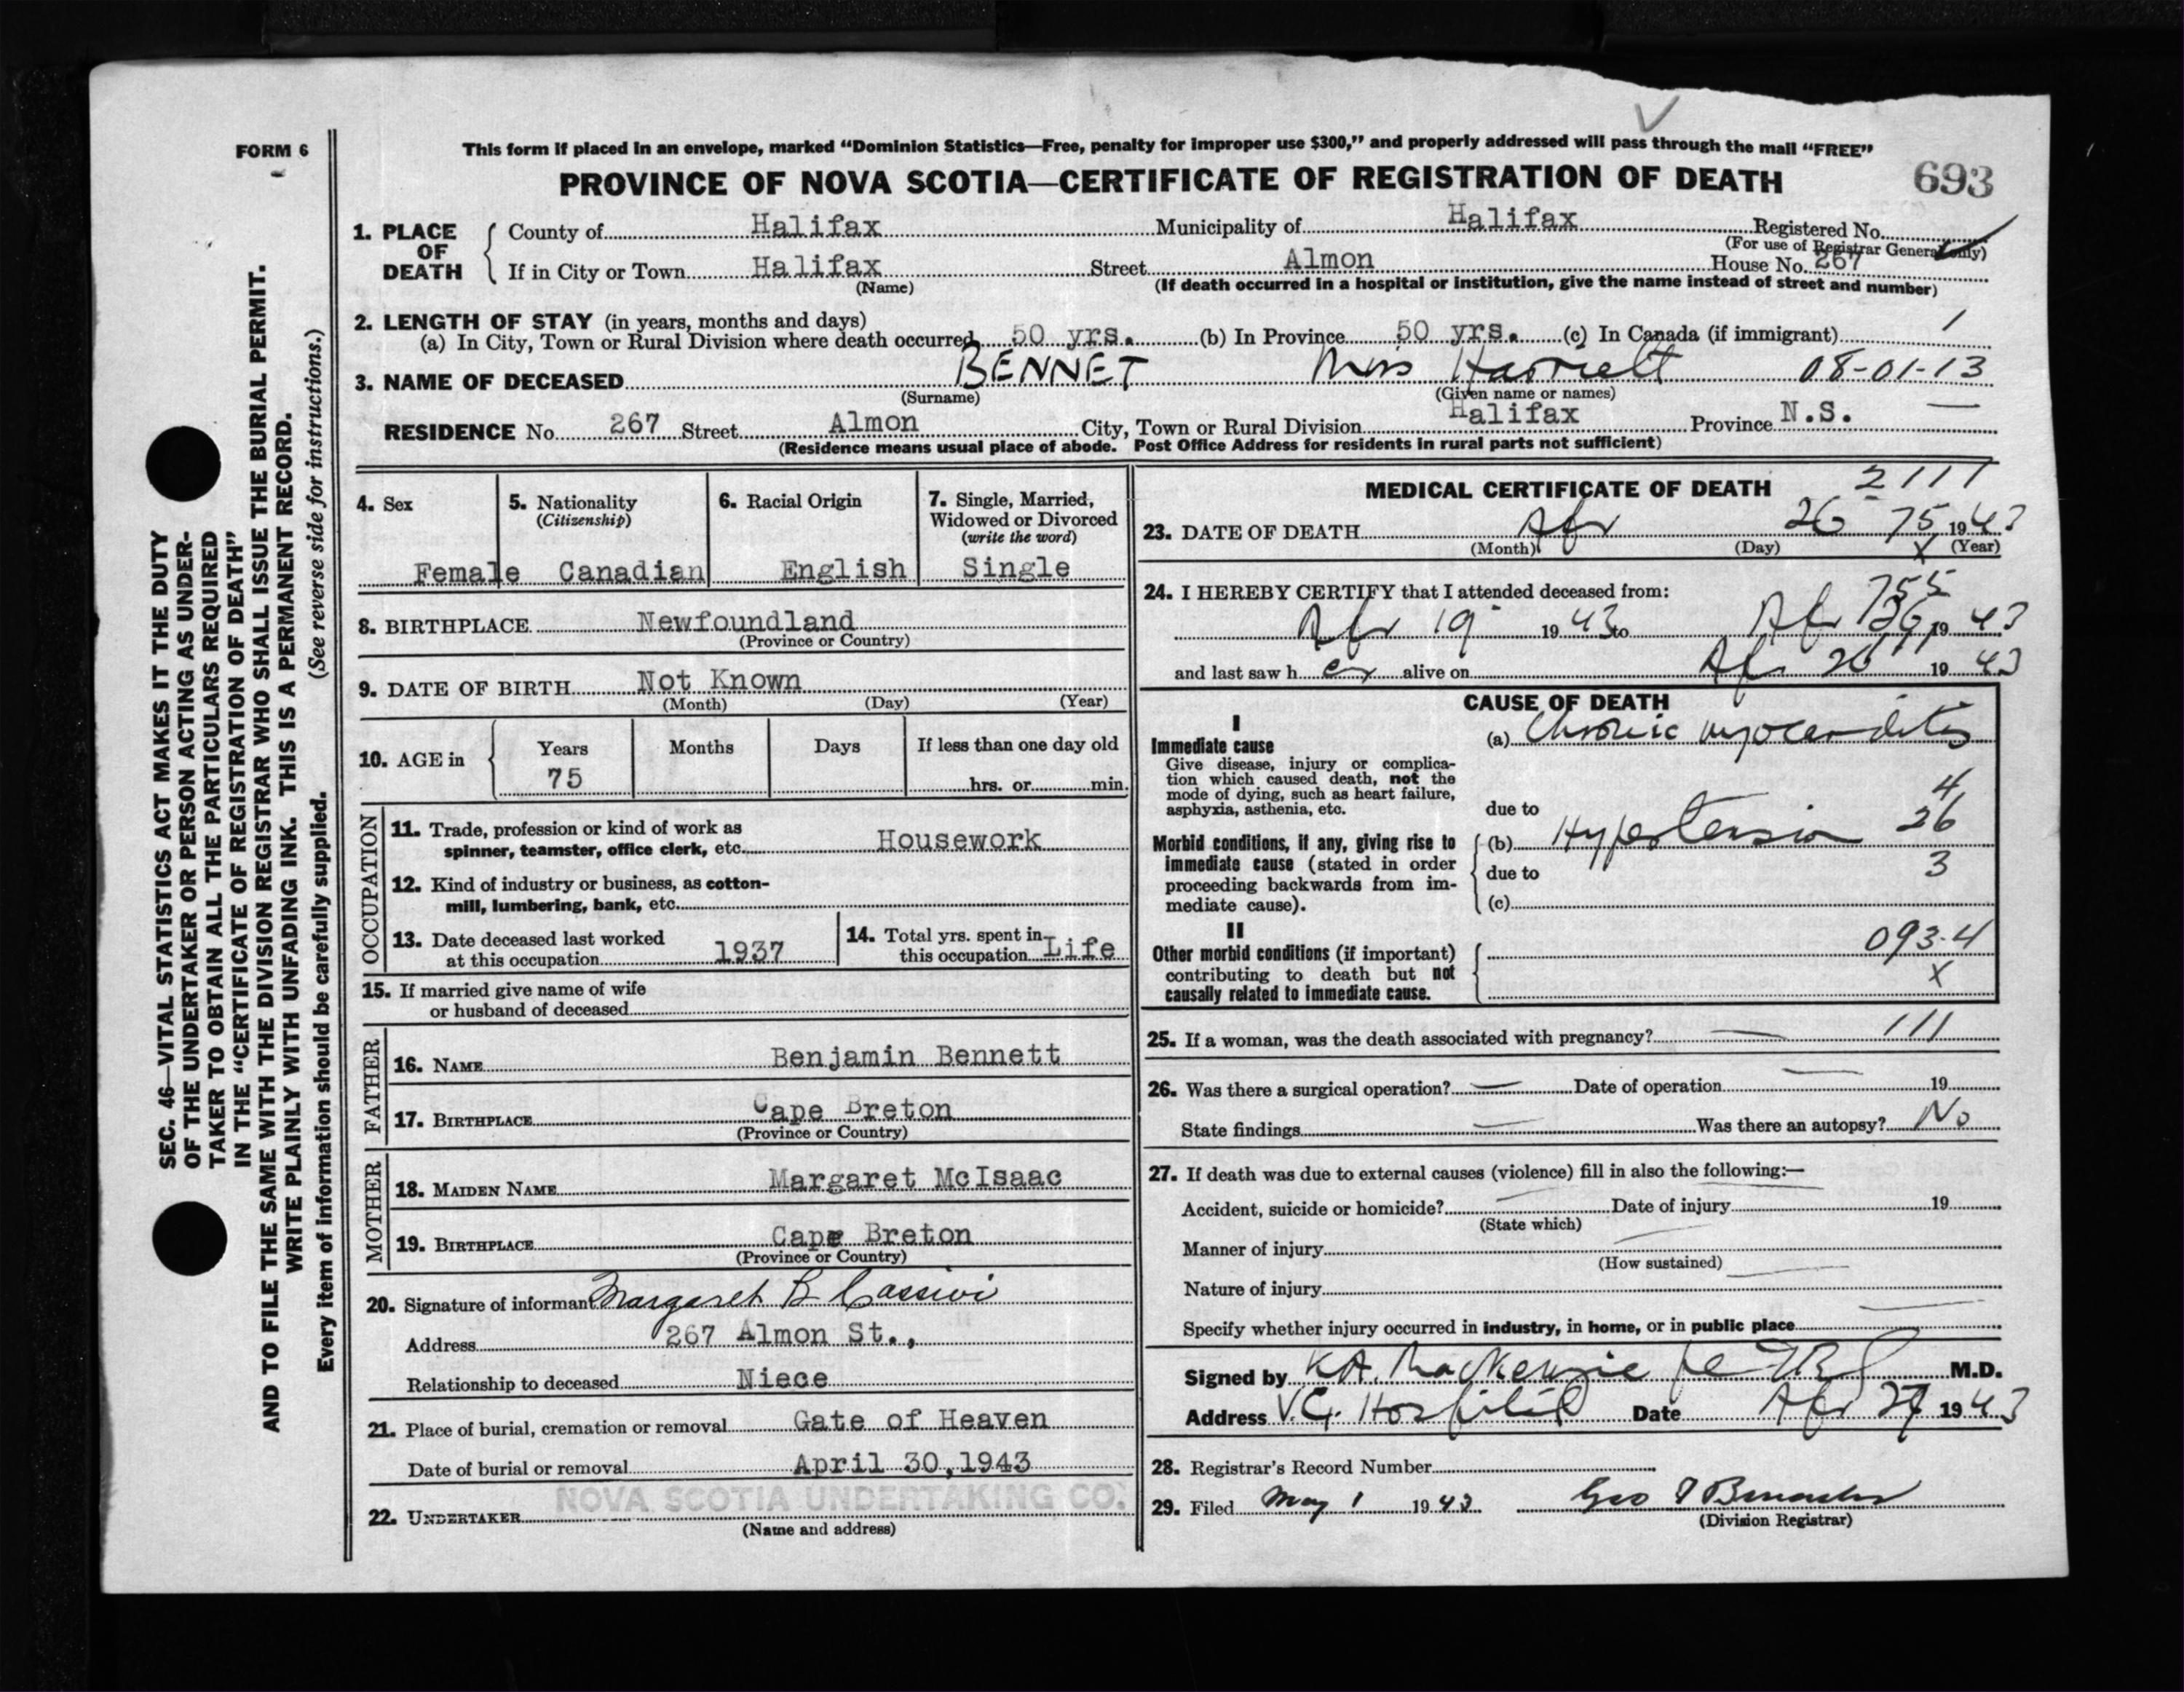 FORM 6
This form if placed in an envelope, marked "Dominion Statistics—Free, penalty for improper use $300," and properly addressed will pass through the mail "FREE"
PROVINCE OF NOVA SCOTIA—CERTIFICATE OF REGISTRATION OF DEATH
693
1. PLACE OF DEATH
County of Halifax Municipality of Halifax Registered No.
(For use of Registrar General only)
If in City or Town Halifax Street Almon House No. 267
(Name) (If death occurred in a hospital or institution, give the name instead of street and number)
2. LENGTH OF STAY (in years, months and days) 1
(a) In City, Town or Rural Division where death occurred 50 yrs. (b) In Province 50 yrs. (c) In Canada (if immigrant)
3. NAME OF DECEASED BENNET Miss Harriett 08-01-13
(Surname) (Given name or names)
RESIDENCE No. 267 Street Almon City, Town or Rural Division Halifax Province N.S.
(Residence means usual place of abode. Post Office Address for residents in rural parts not sufficient)
4. Sex
Female
5. Nationality
(Citizenship)
Canadian
6. Racial Origin
English
7. Single, Married,
Widowed or Divorced
(write the word)
Single
8. BIRTHPLACE Newfoundland
(Province or Country)
9. DATE OF BIRTH Not Known
(Month) (Day) (Year)
10. AGE in Years Months Days If less than one day old
75 hrs. or min.
OCCUPATION
11. Trade, profession or kind of work as
spinner, teamster, office clerk, etc. Housework
12. Kind of industry or business, as cotton-
mill, lumbering, bank, etc.
13. Date deceased last worked
at this occupation 1937
14. Total yrs. spent in
this occupation Life
15. If married give name of wife
or husband of deceased
FATHER
16. NAME Benjamin Bennett
17. BIRTHPLACE Cape Breton
(Province or Country)
MOTHER
18. MAIDEN NAME Margaret McIsaac
19. BIRTHPLACE Cape Breton
(Province or Country)
20. Signature of informant Margaret B Cassivi
Address 267 Almon St.,
Relationship to deceased Niece
21. Place of burial, cremation or removal Gate of Heaven
Date of burial or removal April 30,1943
NOVA SCOTIA UNDERTAKING CO.
22. UNDERTAKER
(Name and address)
MEDICAL CERTIFICATE OF DEATH 2111
23. DATE OF DEATH Apr 26 75 1943
(Month) (Day) X (Year)
755
24. I HEREBY CERTIFY that I attended deceased from:
Apr 19 1943 to Apr 26, 1943
and last saw her alive on Apr 26 1943
CAUSE OF DEATH
I
Immediate cause
Give disease, injury or complica-
tion which caused death, not the
mode of dying, such as heart failure,
asphyxia, asthenia, etc.
(a) Chronic myocarditis
4
due to
26
Morbid conditions, if any, giving rise to
immediate cause (stated in order
proceeding backwards from im-
mediate cause).
(b) Hypertension
due to
3
(c)
II
Other morbid conditions (if important)
contributing to death but not
causally related to immediate cause.
093.4
X
25. If a woman, was the death associated with pregnancy? — 111
26. Was there a surgical operation? — Date of operation — 19
State findings — Was there an autopsy? No
27. If death was due to external causes (violence) fill in also the following:—
Accident, suicide or homicide? Date of injury 19
(State which)
Manner of injury
(How sustained)
Nature of injury
Specify whether injury occurred in industry, in home, or in public place
Signed by K.A. MacKenzie M.D.
Address V.G. Hospital Date Apr 27 1943
28. Registrar's Record Number
29. Filed May 1 1943
(Division Registrar)
SEC. 46—VITAL STATISTICS ACT MAKES IT THE DUTY
OF THE UNDERTAKER OR PERSON ACTING AS UNDER-
TAKER TO OBTAIN ALL THE PARTICULARS REQUIRED
IN THE "CERTIFICATE OF REGISTRATION OF DEATH"
AND TO FILE THE SAME WITH THE DIVISION REGISTRAR WHO SHALL ISSUE THE BURIAL PERMIT.
WRITE PLAINLY WITH UNFADING INK. THIS IS A PERMANENT RECORD.
Every item of information should be carefully supplied. (See reverse side for instructions.)